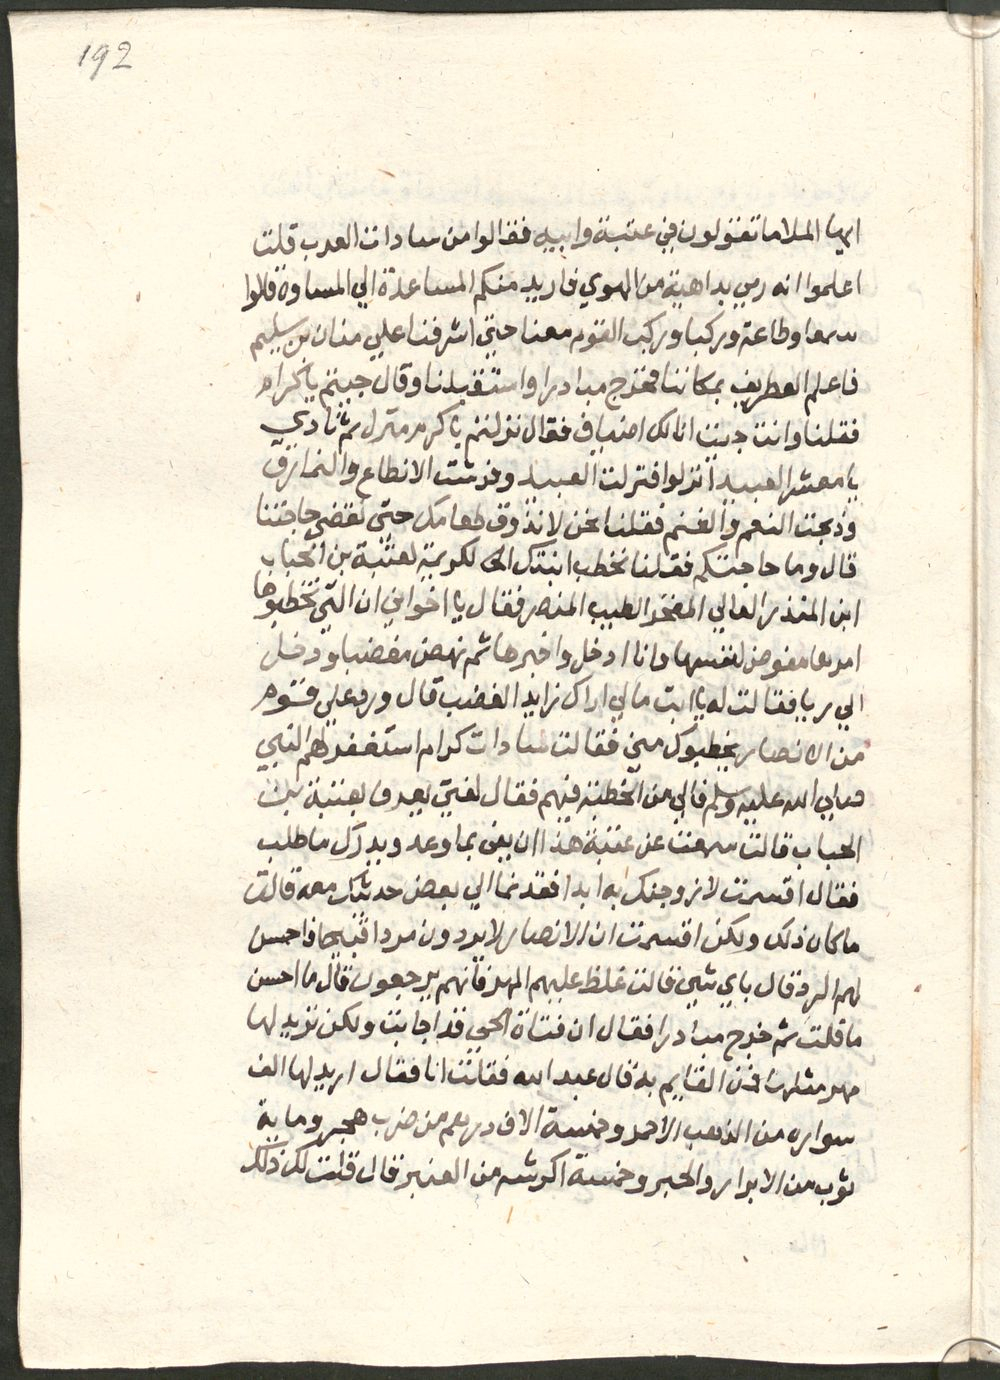 192
ايها الملا ما تقولون في عتبة وابيه فقالوا من سادات العرب قلت
اعلموا انه رمي بداهية من الهوي فاريد منكم المساعدة الي المساوة قالوا
سمعا وطاعة وركبا وركب القوم معنا حتي اشرفنا علي منان بن سليم
فاعلم الغطريف بمكاننا فخرج مبادرا واستقبلنا وقال حييتم يا كرام
فقلنا وانت حييت انا لك اضياف فقال نزلتم باكرم منزل ثم نادي
يا معشر العبيد انزلوا فنزلت العبيد وفرشت الانطاع والنمارق
وذبحت النعم والغنم فقلنا نحن لا نذوق طعامك حتي تقضي حاجتنا
قال وما حاجتكم فقلنا نخطب ابنتك الكريمة لعتبة بن الحباب
ابن المنذر العالي المفخر الطيب المنصر فقال يا اخواني ان التي تخطبوها
امرها مفوض لنفسها وانا ادخل واخبرها ثم نهض مغضبا ودخل
الي ريا فقالت له يا ابت مالي اراك زايد الغضب قال ورد علي قوم
من الانصار يخطبوك مني فقالت سادات كرام استغفر لهم النبي
صلي الله عليه وسلم فالي من الخطبة فيهم فقال لفتي يعرف بعتبة بن
الحباب قالت سمعت عن عتبة هذا ان يفي بما وعد ويدرك ما طلب
فقال اقسمت لا زوجتك به ابدا فقد نما الي بعض حديثك معه قالت
ما كان ذلك ولكن اقسمت ان الانصار لا يردون مردا قبيحا فاحسن
لهم الرد قال باي شي قالت غلظ عليهم المهر فانهم يرجعون قال ما احسن
ما قلت ثم خرج مبادرا فقال ان فتاة الحي قد اجابت ولكن نزيد لها
مهر مثلها فمن القايم به قال عبد الله فقلت انا فقال اريد لها الف
سواره من الذهب الاحمر وخمسة الاف درهم من ضرب هجر ومايه
ثوب من الابراد والحبر وخمسة اكرشه من العنبر قال قلت لك ذلك